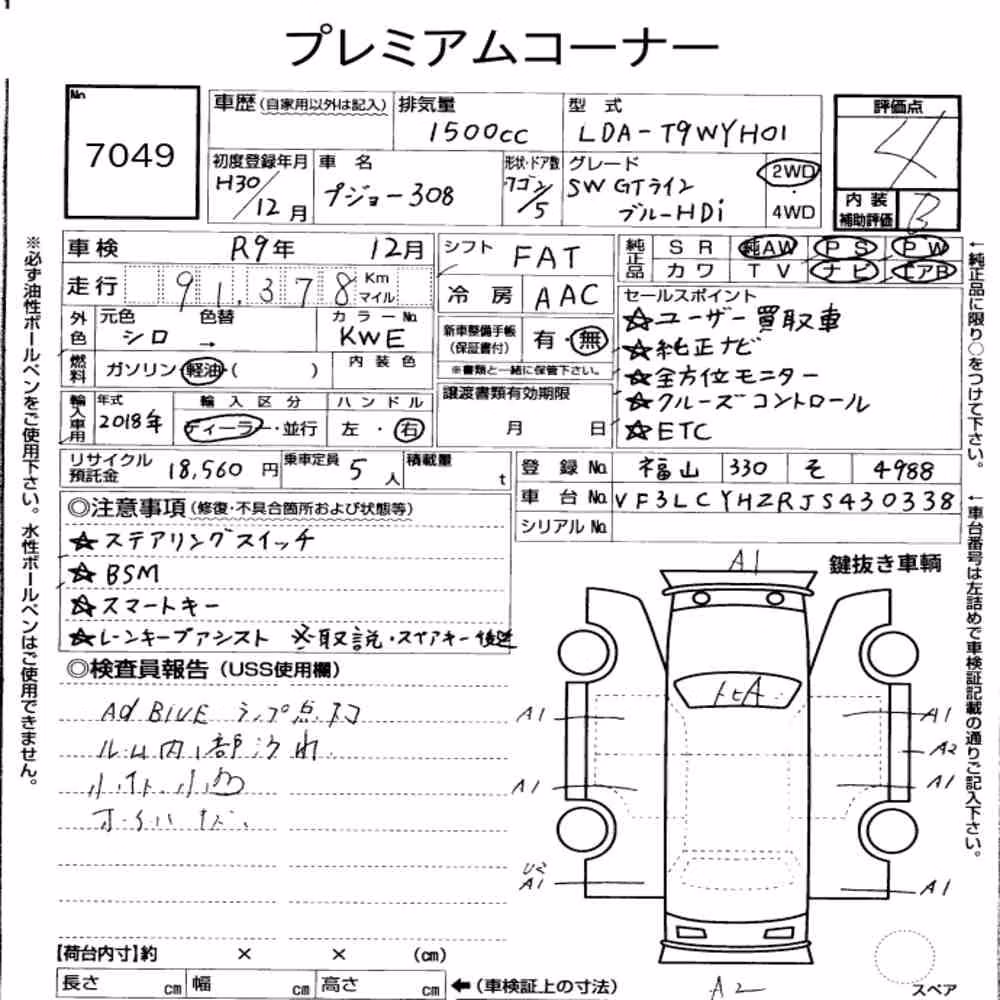 プレミアムコーナー
No
7049
車歴(自家用以外は記入)
排気量
1500cc
型式
LDA-T9WYH01
評価点
4
初度登録年月
H30/12月
車名
プジョー308
形状・ドア数
ワゴン/5
グレード
SW GTライン
ブルーHDi
2WD
・
4WD
内装
補助評価
B
車検
R9年 12月
シフト
FAT
純正品
SR 純AW PS PW
カワ TV ナビ エアB
走行
91,378
Km
マイル
冷房
AAC
セールスポイント
☆ユーザー買取車
☆純正ナビ
☆全方位モニター
☆クルーズコントロール
☆ETC
外色
元色 色替
シロ →
カラーNo
KWE
新車整備手帳
(保証書付)
有・無
※書類と一緒に保管下さい。
燃料
ガソリン・軽油・( )
内装色
譲渡書類有効期限
月 日
輸入車用
年式
2018年
輸入区分
ディーラー・並行
ハンドル
左・右
リサイクル
預託金
18,560円
乗車定員
5人
積載量
t
登録No
福山 330 そ 4988
車台No
VF3LCYHZRJS430338
シリアルNo
◎注意事項(修復・不具合箇所および状態等)
☆ステアリングスイッチ
☆BSM
☆スマートキー
☆レーンキープアシスト ※取説・スペアキー後送
◎検査員報告(USS使用欄)
Ad BLUE ランプ点灯
内部汚れ
鍵抜き車輌
A1
A1
A1
A2
A1
A1
A1
A1
A2
スペア
【荷台内寸】約 × × (cm)
長さ cm 幅 cm 高さ cm
←(車検証上の寸法)
※必ず油性ボールペンをご使用下さい。水性ボールペンはご使用できません。
←純正品に限り○をつけて下さい。
←車台番号は左詰めで車検証記載の通りご記入下さい。